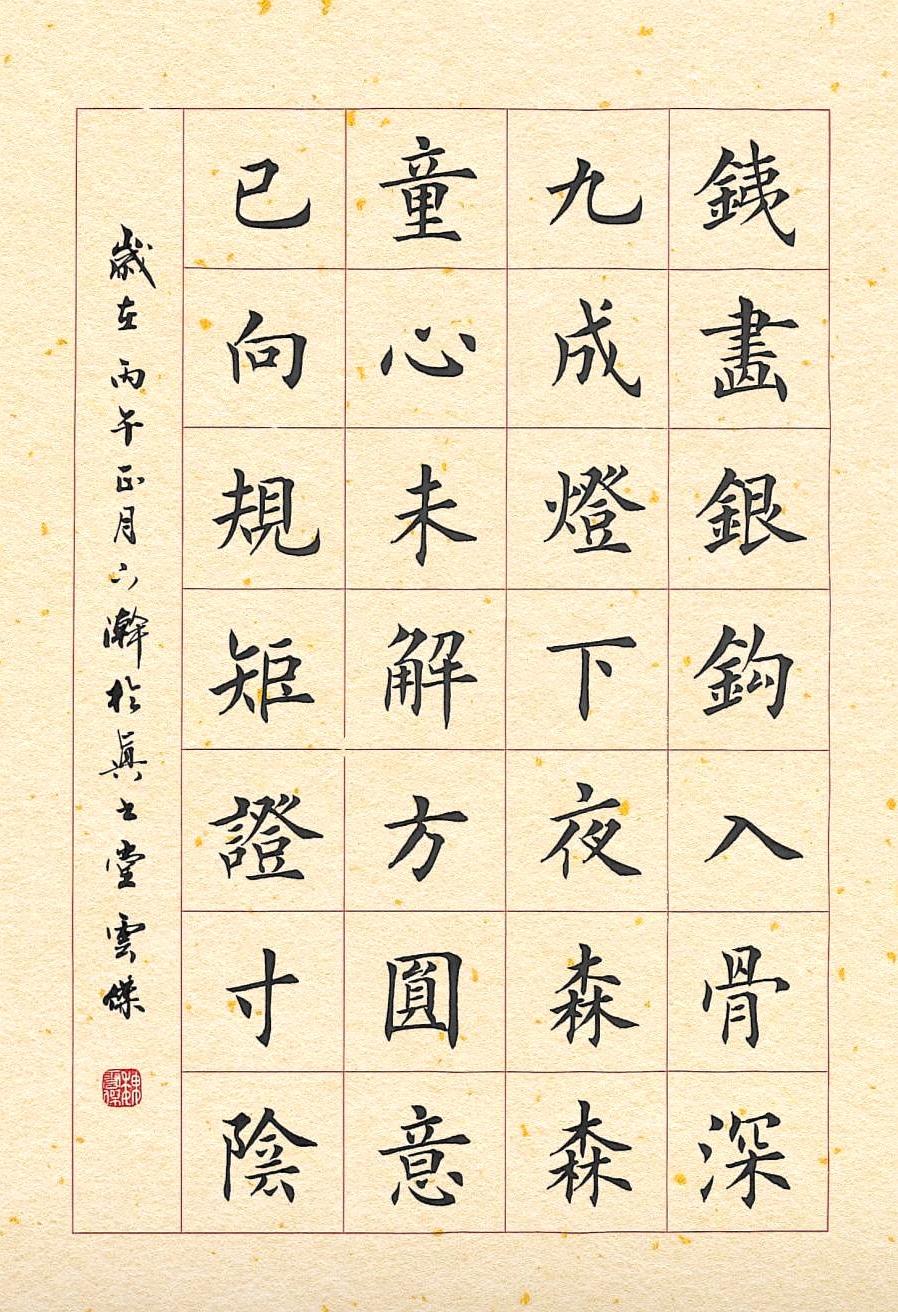 銕畵銀鈎入骨深
九成燈下夜森森
童心未解方圓意
已向規矩證寸陰
歲在丙午正月下澣於眞书堂雲傑